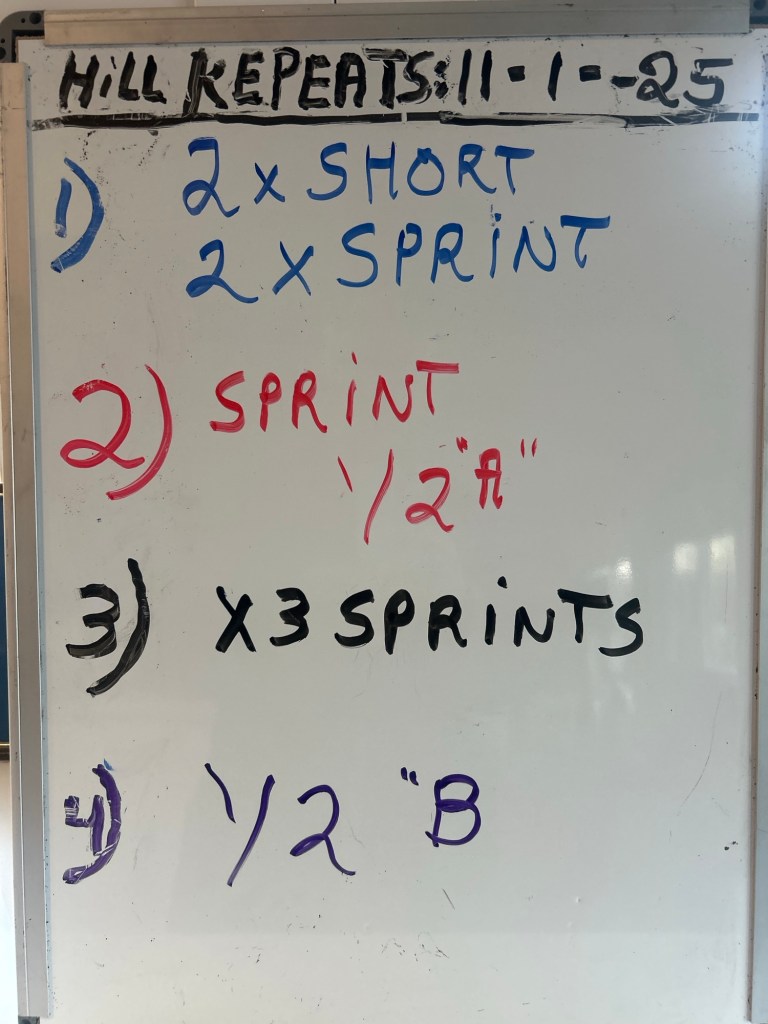 HiLL REPEATS: 11-1--25
1) 2 x SHORT
2 x SPRiNT
2) SPRiNT
1/2 "A"
3) x3 SPRiNTS
4) 1/2 "B